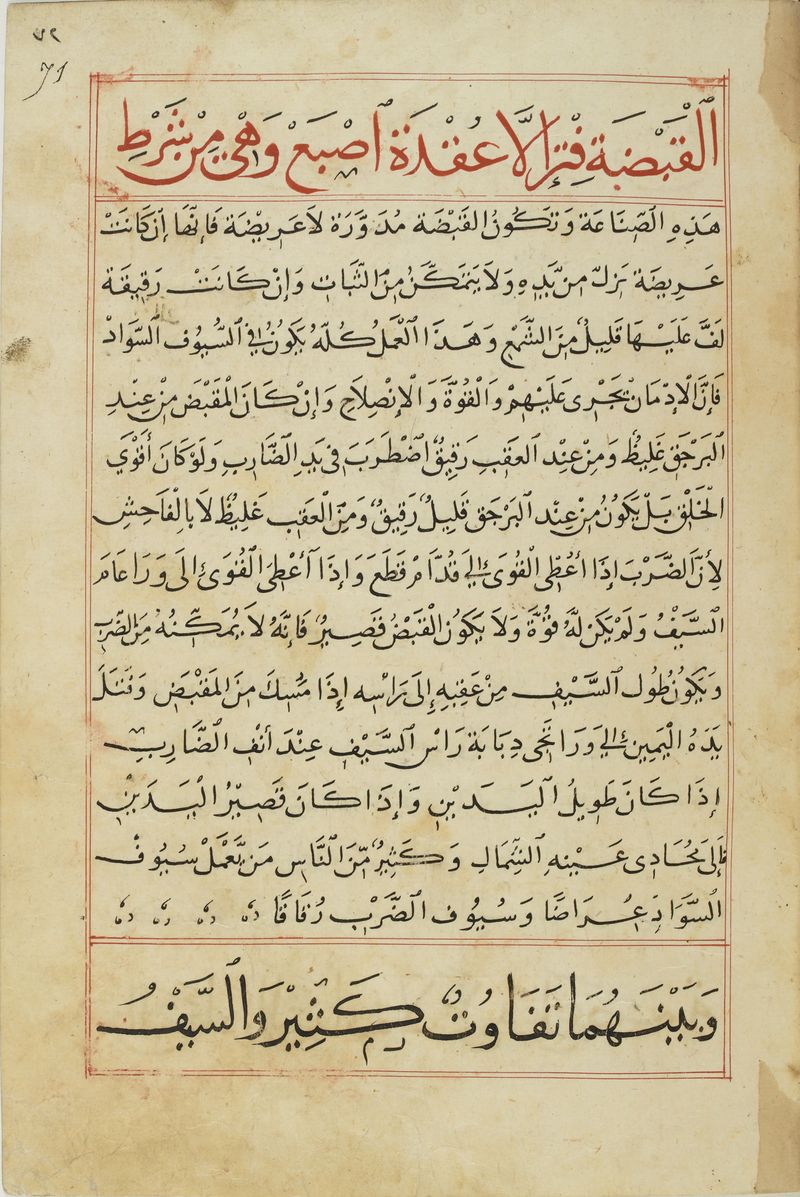 ٧٢
71
القَبْضَة فِتْرالَّا عُقْدَةَ اَصْبَعْ وَهْيَ مِنْ شَرْطِ
هَذِهِ الصِّنَاعَة وَتَكُونُ القَبْضَة مُدَوَّرَة لَا عَرِيْضَة فَإِنَّهَا إِنْ كَانَتْ
عَرِيضَة نزلّ مِن يَدِهِ وَلَا يَتَمَكَّنُ مِنَ الثَّبَاتِ وَإِنْ كَانَتْ رَقِيقَة
لَفَّ عَلَيْهَا قَلِيلٌ مِنَ الشَّمْعِ وَهَذَا الْعَمَلُ كُلّهُ يَكُونُ فِي السُّيُوفِ السَّوَادْ
فَإِنَّ الْادْمَانْ يَجْرِى عَلَيْهِمْ وَالْقُوَّةَ وَالْانْصِلَاحِ وَإِنْ كَانَ الْمَقْبَضْ مِنْ عِنْدِ
البَرْجَقِ غَلِيظٌ وَمِنْ عِنْدِ العَقِبِ رَقِيقٌ اضْطَرَبَ فِى يَدِ الضَّارِبِ وَلَوْ كَانَ أَقْوَي
الْخَلْقِ بَلْ يَكُونُ مِنْ عِنْدِ البَرْجَقِ قَلِيلٌ رَقِيقٌ وَمِنَ الْعَقِبِ غَلِيظٌ لَا بِالْفَاحِشِ
لِأَنَّ الضَّرْبَ إِذَا أَعْطَى الْقُوَى إِلَي قُدَّامْ قَطَعَ وَإِذَا أَعْطَى الْقُوَى إِلَى وَرَا عَامَ
السَّيْفُ وَلَمْ يَكُنْ لَهُ قُوَّةَ وَلَا يَكُونُ الْقَبْضُ قَصِيرٌ فَإِنَّهُ لَا يُمَكِّنُهُ مِنَ الضَرْبِ
وَيَكُونُ طُول السَّيْفِ مِنْ عَقِبِهِ إِلَى رَاْسِه إِذَا مُسِكَ مِنَ المَقْبَضِ وَفَتَلَ
يَدَهُ الْيَمِينِ إِلَي وَرَا تَجى دبَابَة رَاسْ السَّيْفِ عِنْدَ أَنْفِ الضَّارِبِ
إِذَا كَانَ طَوِيلُ الْيَدَيْنِ وَإِذَا كَانَ قَصِيْرُ الْيَدَيْنِ
فَإِلَى مُحَادِى عَيْنِهِ الشِّمَالِ وَكَثِيرٌ مِّنَ النَّاسِ مَنْ يَّعْمَلْ سُيُوفَ
السَّوَادِ عِرَاضًا وَسُيُوف الضَّرْبِ رُقَاقًا
وَبَيْنَهُمَا تَفَاوُتٌ كَثِيْر وَالسَّيْفُ